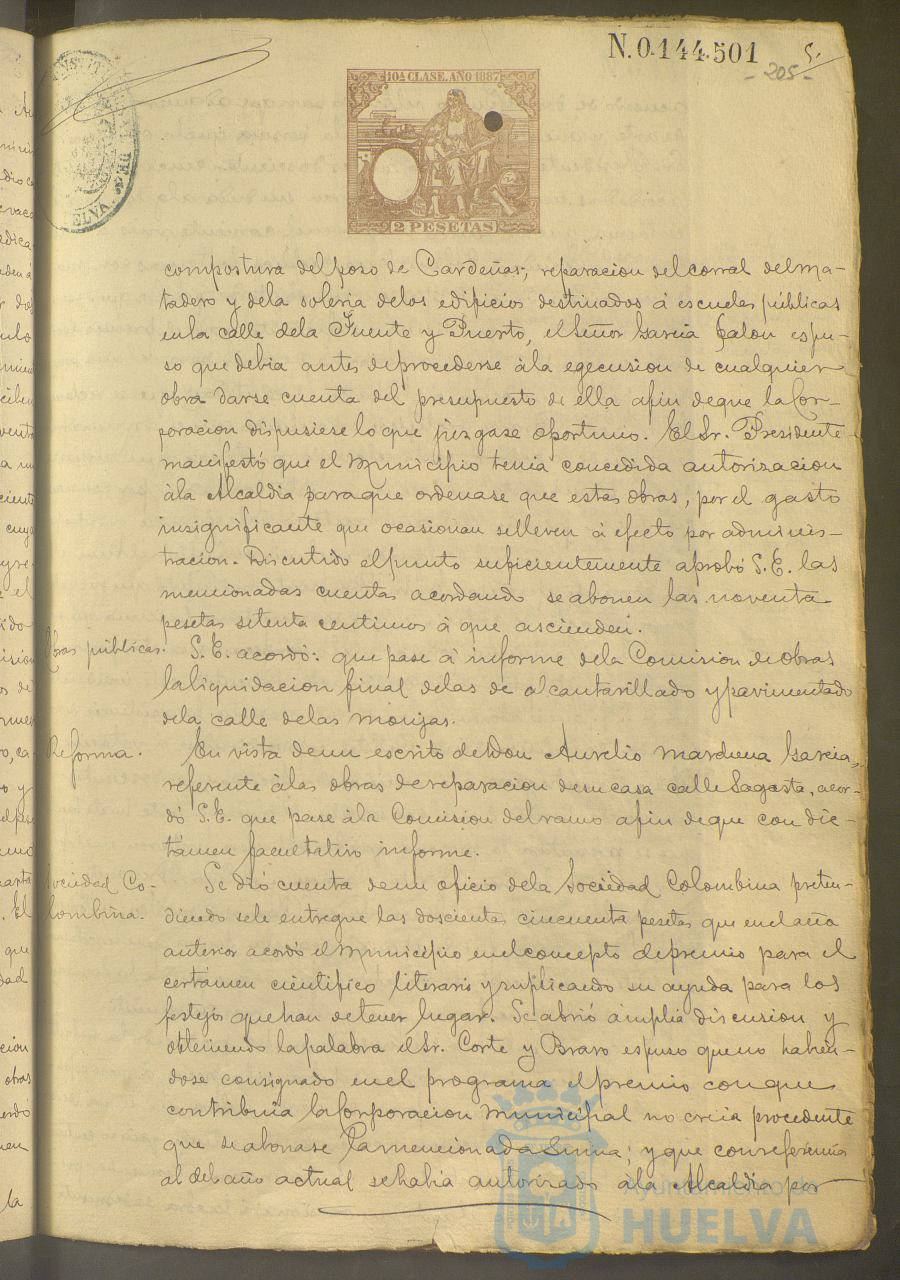 N.0.144.501
5.
- 205 -
10ª CLASE. AÑO 1887
2 PESETAS
compostura del poso de Cardeñas, reparacion del corral del ma-
tadero y dela soleria delos edificios destinados á escuelas públicas
en la calle dela Fuente y Puerto, el Señor Garcia Galon espu-
so que debia antes de procederse ála egecusion de cualquier
obra darse cuenta del presupuesto de ella afin deque la Cor-
poracion dispusiese lo que jusgase oportuno. El Sr. Presidente
manifestó que el Municipio tenia concedida autorizacion
ála Alcaldia paraque ordenase que estas obras, por el gasto
insignificante que ocasionan selleven á efecto por adminis-
tracion. Discutido el punto suficientemente aprobó S.E. las
mencionadas cuentas acordando se abonen las noventa
pesetas setenta centimos á que ascienden.
Obras públicas. S.E. acordó: que pase á informe dela Comision de obras
la liquidacion final delas de alcantarillado y pavimentado
dela calle delas Monjas.
Reforma. En vista deun escrito de Don Aurelio Marchena Garcia,
referente álas obras dereparacion desu casa calle Sagasta, acor-
dó S.E. que pase ála Comision del ramo afin deque con dic-
támen facultativo informe.
Sociedad Co- Se dió cuenta deun oficio dela Sociedad Colombina preten-
lombina. diendo sele entregue las doscientas cincuenta pesetas que enel año
anterior acordó el Municipio enel concepto de premio para el
certámen cientifico literario y suplicando su ayuda para los
festejos que han detener lugar. Se abrió ámplia discusion y
obteniendo la palabra el Sr. Corte y Bravo espuso que no habien-
dose consignado enel programa el premio con que
contribuia la Corporacion Municipal no creia procedente
que se abonase la mencionada Suma; y que con referencia
al del año actual se habia autorizado ála Alcaldia por
Ayuntamiento de
HUELVA